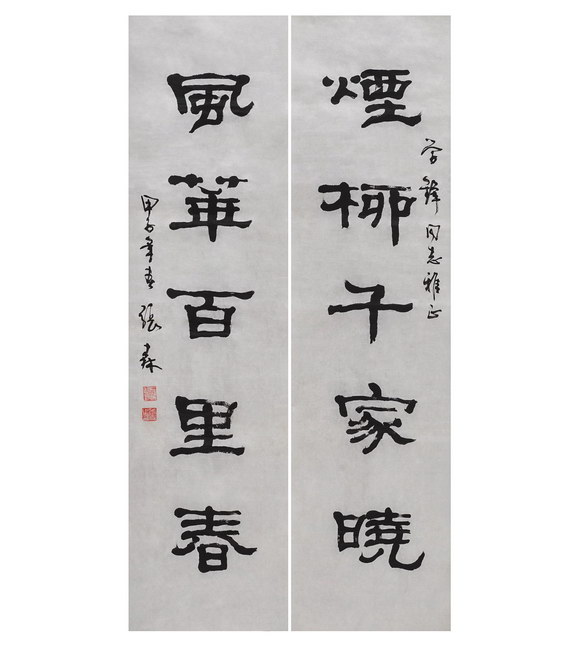 煙柳千家曉
学鋒同志雅正
風華百里春
甲子年春張森